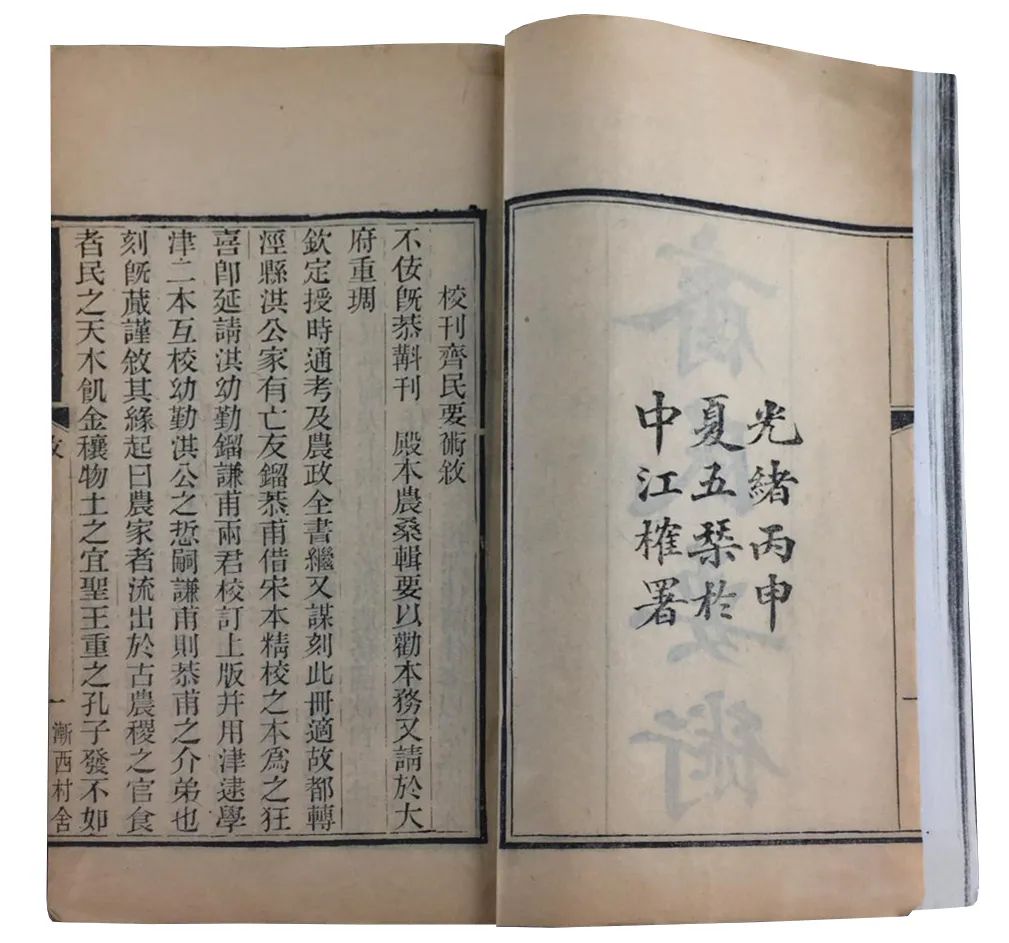 光緒丙申
夏五琹於
中江榷署
校刊齊民要術敘
不佞旣恭斠刊　殿本農桑輯要以勸本務又請於大
府重琱
欽定授時通考及農政全書繼又謀刻此冊適故都轉
涇縣洪公家有亡友鎦恭甫借宋本精校之本爲之狂
喜卽延請淇幼勤鎦謙甫兩君校訂上版并用津逮學
津二本互校幼勤淇公之悊嗣謙甫則恭甫之介弟也
刻旣蕆謹敘其緣起曰農家者流出於古農稷之官食
者民之天木飢金穰物土之宜聖王重之孔子發不如
一
漸西村舍